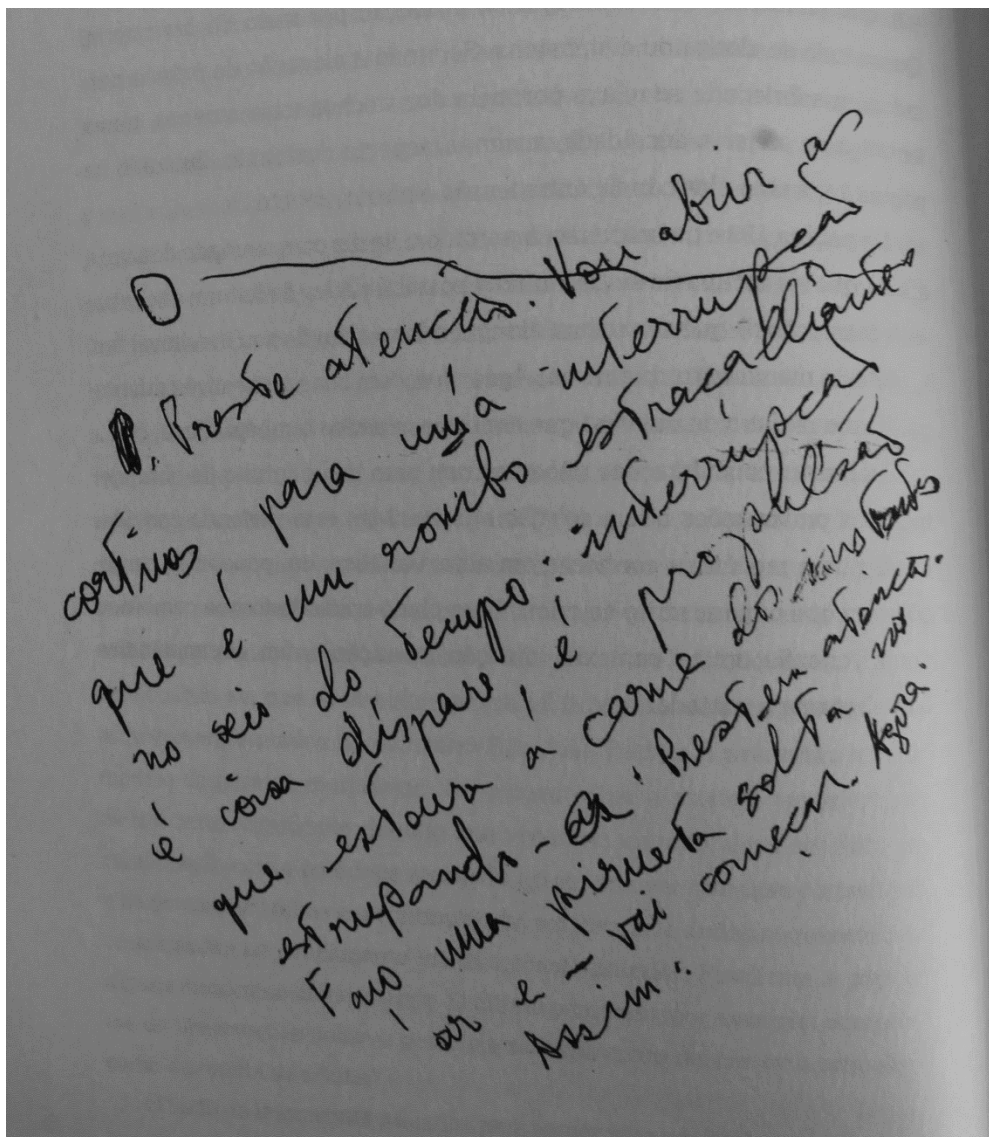 Preste atenção. Vou abrir as
cortinas para uma interrupção
que é um rombo estraçalhante
no seio do tempo: interrupção
é coisa díspare é projetilzão
que estoura a carne dos
estrupando-a. Prestem atenção.
Faço uma pirueta solta no
ar e – vai começar. Agora.
Assim: